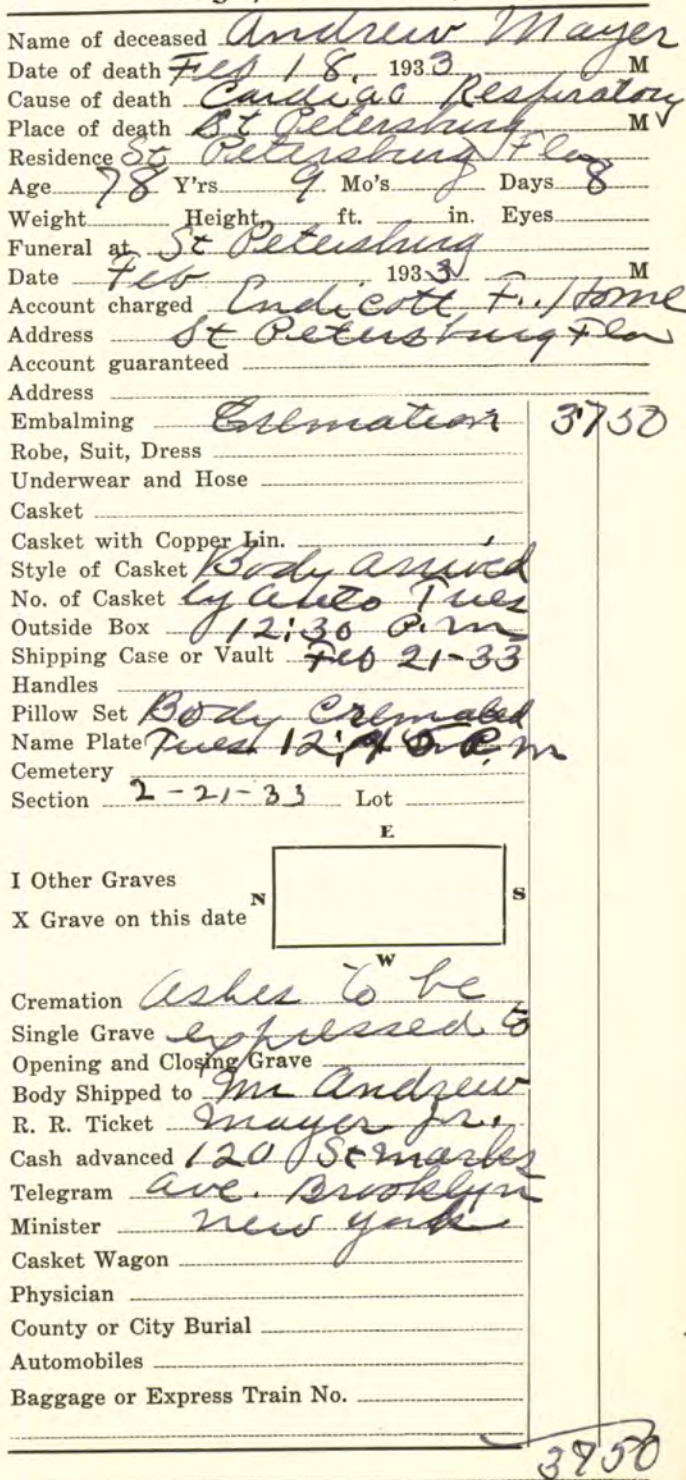 Name of deceased Andrew Mayer
Date of death Feb 18, 1933 M
Cause of death Cardiac Respiratory
Place of death St Petersburg M
Residence St Petersburg Fla
Age 78 Y'rs 9 Mo's Days 8
Weight Height ft. in. Eyes
Funeral at St Petersburg
Date Feb 1933 M
Account charged Endicott F. Home
Address St Petersburg Fla
Account guaranteed
Address
Embalming Cremation 37 50
Robe, Suit, Dress
Underwear and Hose
Casket
Casket with Copper Lin.
Style of Casket Body arrived
No. of Casket by auto Tues
Outside Box 12:30 P.m
Shipping Case or Vault Feb 21-33
Handles
Pillow Set Body Cremated
Name Plate Tues 12:45 P.m
Cemetery
Section 2-21-33 Lot
E
I Other Graves
N S
X Grave on this date
W
Cremation Ashes to be
Single Grave expressed to
Opening and Closing Grave
Body Shipped to Mr Andrew
R. R. Ticket Mayer Jr.
Cash advanced 120 St Marks
Telegram ave. Brooklyn
Minister New York
Casket Wagon
Physician
County or City Burial
Automobiles
Baggage or Express Train No.
37 50